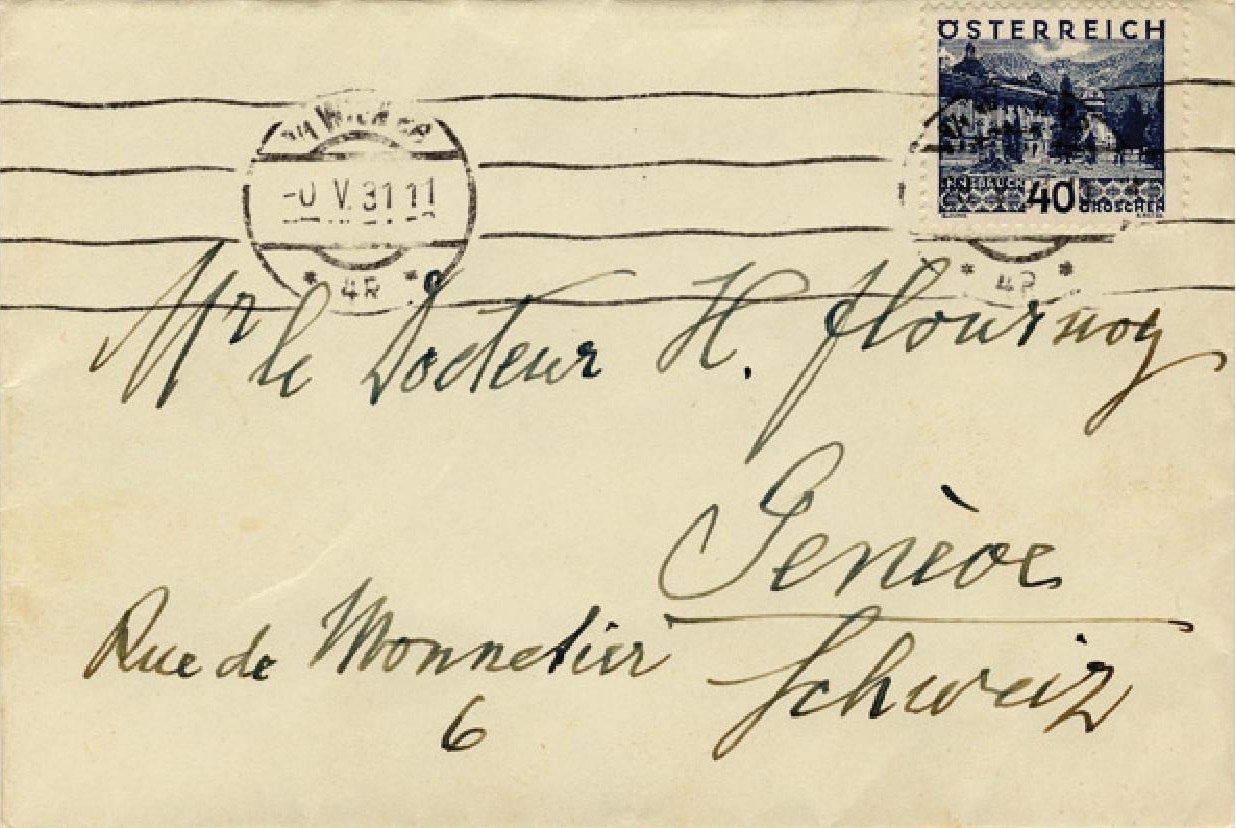 ÖSTERREICH
INNSBRUCK 40 GROSCHEN
WIEN
V. 31 11
* 4R *
Mr le Docteur H. Flournoy
Genève
Rue de Monnetier
Schweiz
6